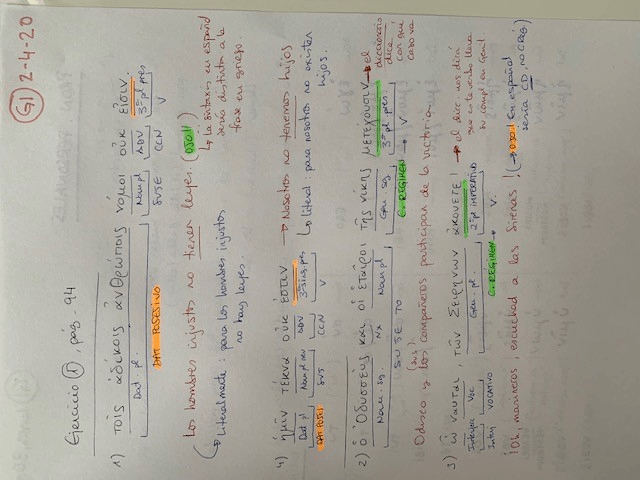 G1 2-4-20
Ejercicio 1, pág. 94
1) τοῖς ἀδίκοις ἀνθρώποις νόμοι οὐκ εἰσιν
Dat. pl. Nom pl ADV 3ª pl pres
DAT POSESIVO SUJE CCN V
Los hombres injustos no tienen leyes. (OJO!!
↳ La sintaxis en español sería distinta a la frase en griego.
(↳ Literalmente: para los hombres injustos
no hay leyes.
4) ἡμῖν τέκνα οὐκ ἐστιν → Nosotros no tenemos hijos
Dat pl Nom pl neu ADV 3ª sing. pres
DAT POSES SUJ CCN V
↳ literal: para nosotros no existen
hijos.
2) ὁ Ὀδυσσεὺς καὶ οἱ ἑταῖροι τῆς νίκης μετέχουσιν → el diccionario dice con que caso va
Nom. sg Nx Nom pl Gen sg 3ª pl pres
SUJETO C. RÉGIMEN V
Odiseo y los (sus) compañeros participan de la victoria.
3) ὦ ναῦται, τῶν Σειρήνων ἀκούετε! → el dicc. nos dirá
que este verbo lleva
su compl. en Gen!
Interjec Voc Gen. pl. 2ª pl IMPERATIVO
Inter VOCATIVO C. RÉGIMEN V.
¡Oh, marineros, escuchad a las Sirenas! (→ OJO! En español
sería CD, no CRég)